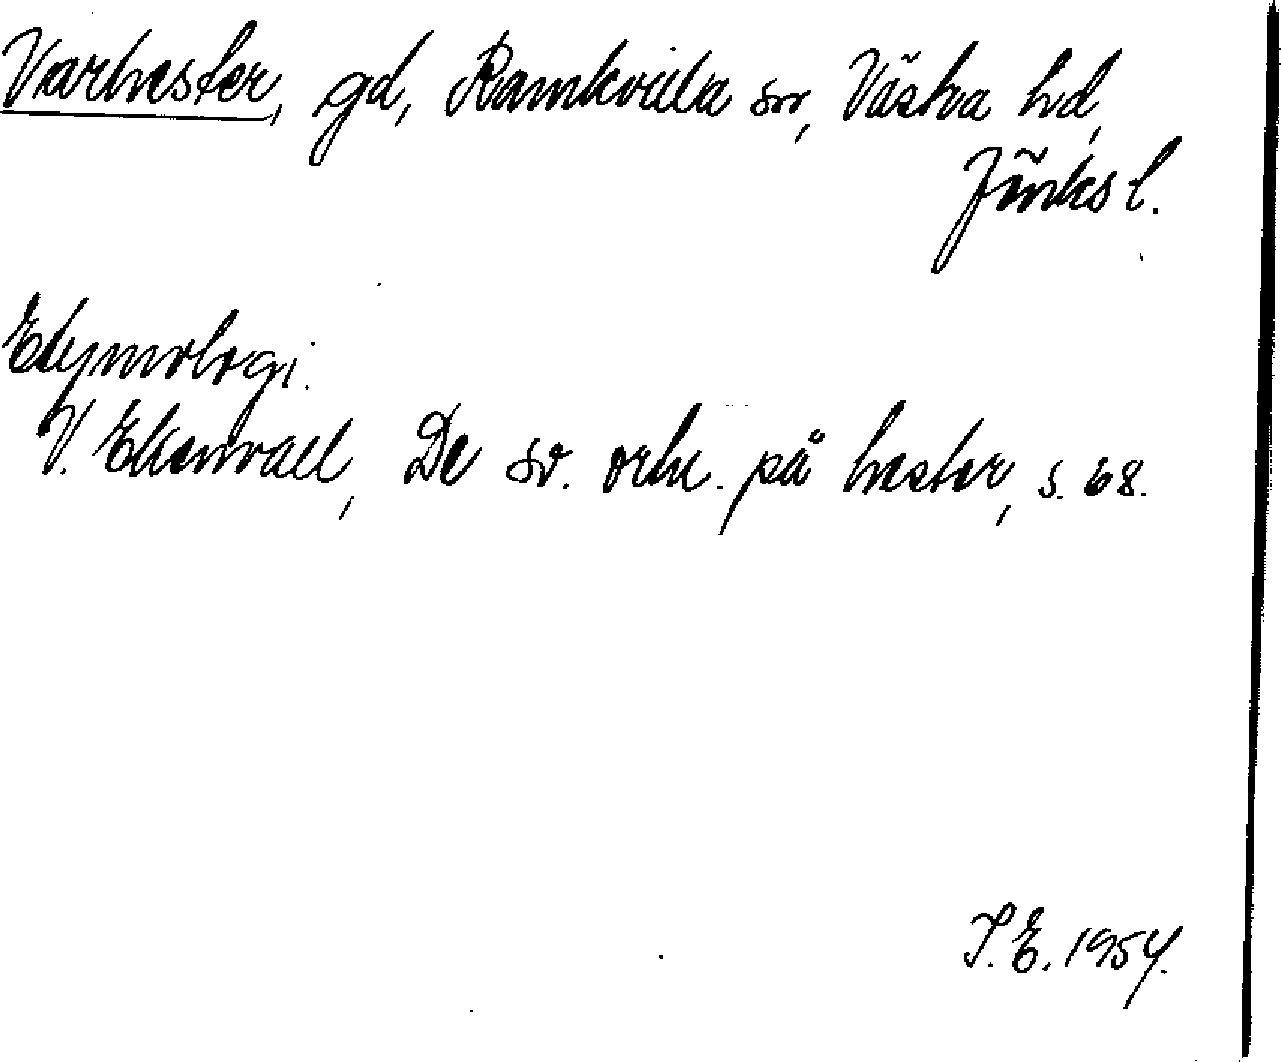 Varhester, gd, Ramkvilla sn, Västra hd,
Jönks l.
Etymologi.
V. Ekenvall, De sv. ortn. på hester, s. 68.
I. E. 1954.